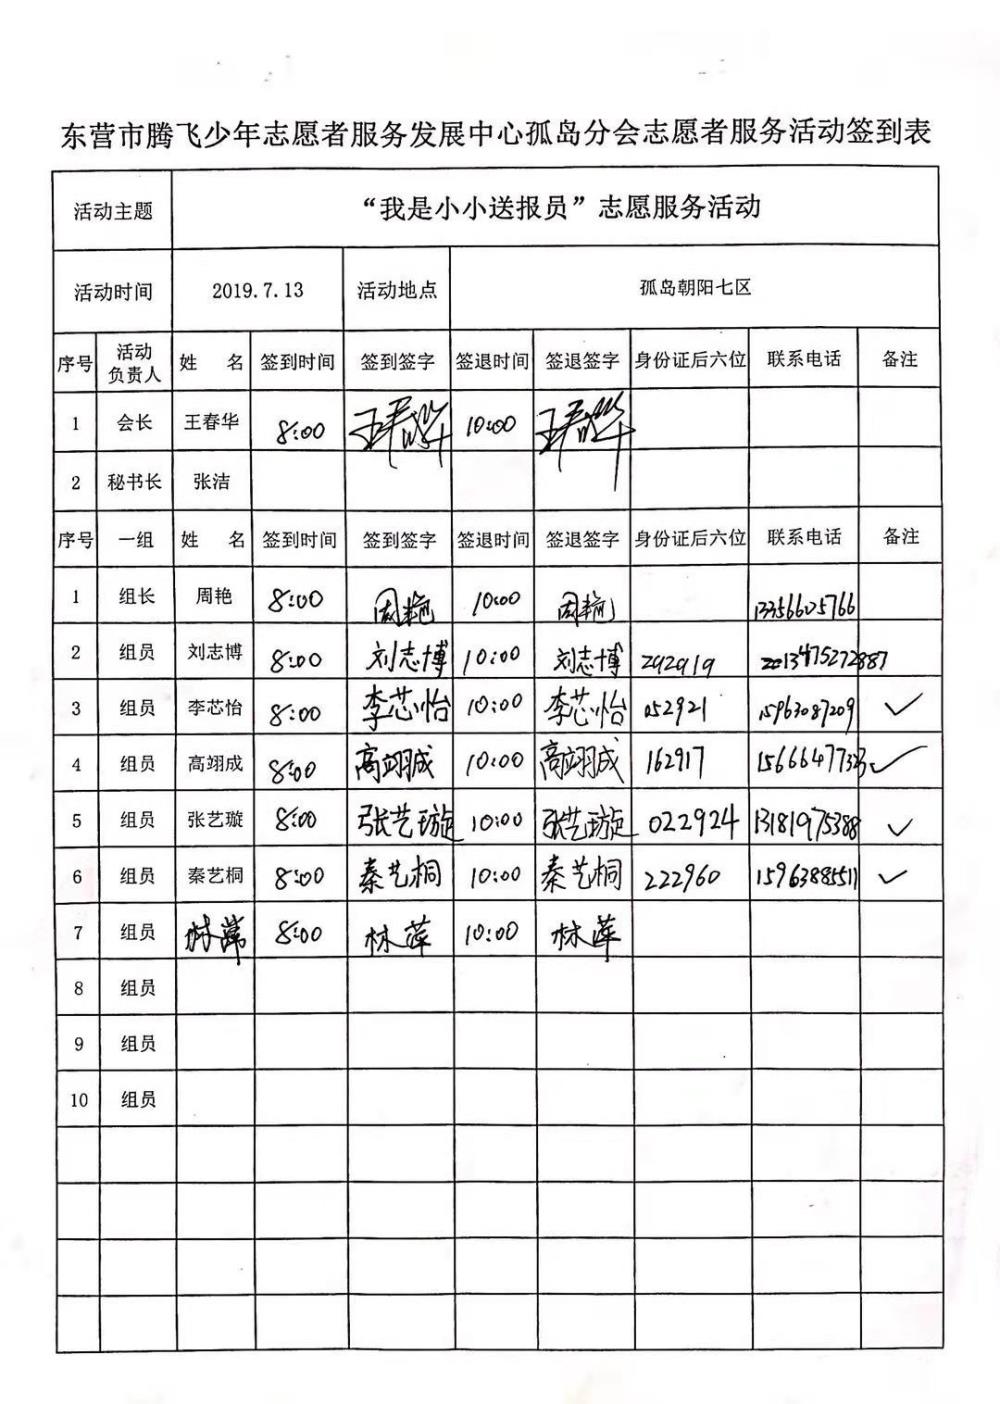 东营市腾飞少年志愿者服务发展中心孤岛分会志愿者服务活动签到表
活动主题 “我是小小送报员”志愿服务活动
活动时间 2019.7.13 活动地点 孤岛朝阳七区
序号 活动负责人 姓 名 签到时间 签到签字 签退时间 签退签字 身份证后六位 联系电话 备注
1 会长 王春华 8:00 王春华 10:00 王春华
2 秘书长 张洁
序号 一组 姓 名 签到时间 签到签字 签退时间 签退签字 身份证后六位 联系电话 备注
1 组长 周艳 8:00 周艳 10:00 周艳 13356605766
2 组员 刘志博 8:00 刘志博 10:00 刘志博 292919
3 组员 李芯怡 8:00 李芯怡 10:00 李芯怡 052921 15963087209 ✓
4 组员 高翊成 8:00 高翊成 10:00 高翊成 162917 ✓
5 组员 张艺璇 8:00 张艺璇 10:00 张艺璇 022924 13181975388 ✓
6 组员 秦艺桐 8:00 秦艺桐 10:00 秦艺桐 222960 15963885511 ✓
7 组员 林萍 8:00 林萍 10:00 林萍
8 组员
9 组员
10 组员